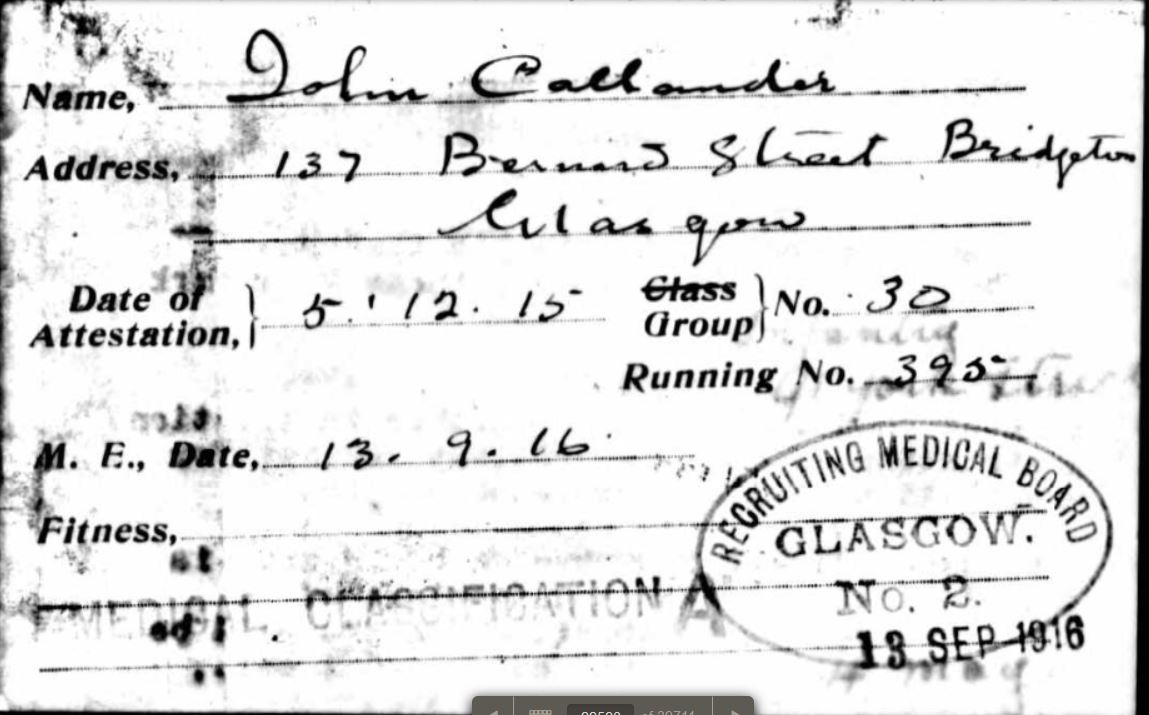 Name, John Callander
Address, 137 Bernard Street Bridgeton
Glasgow
Date of Attestation, 5. 12. 15 Class Group No. 30
Running No. 395
M. E., Date, 13. 9. 16
Fitness,
RECRUITING MEDICAL BOARD
GLASGOW.
No. 2.
MEDICAL CLASSIFICATION A
13 SEP 1916